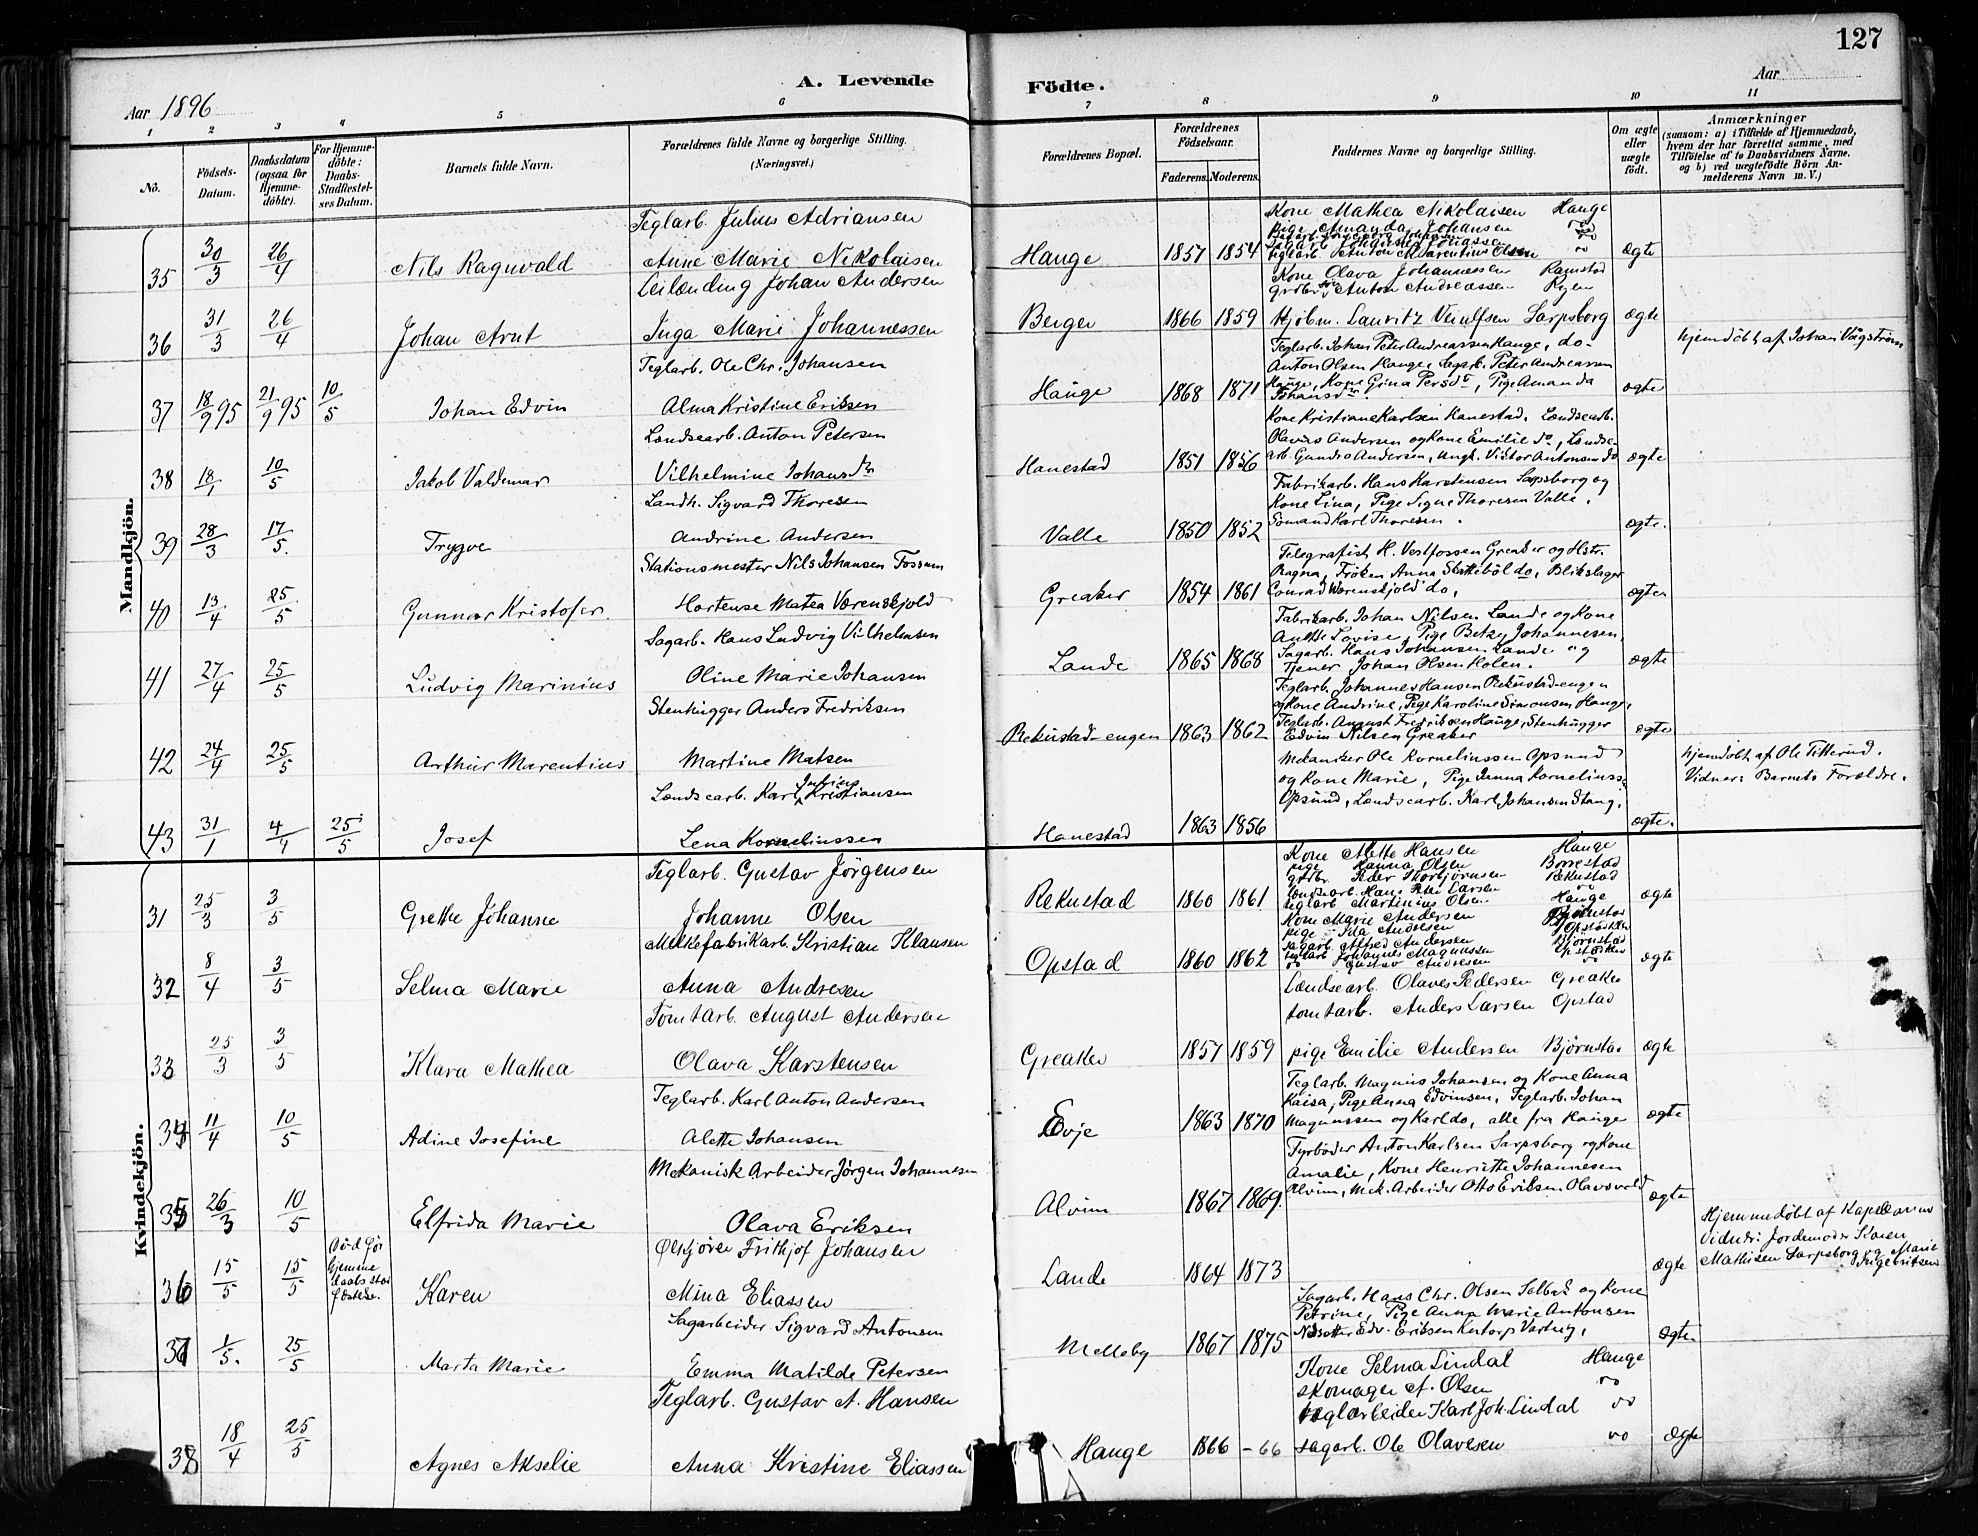 127
A. Levende Födte.
Aar 1896
Aar
1 2 3 4 5 6 7 8 9 10 11
No.
Födsels-Datum.
Daabsdatum (ogsaa for Hjemme-döbte).
For Hjemme-döbte: Daabs-Stadfæstel-ses Datum.
Barnets fulde Navn.
Forældrenes fulde Navne og borgerlige Stilling. (Næringsvei.)
Forældrenes Bopæl.
Forældrenes Födselsaar.
Faderens. Moderens.
Faddernes Navne og borgerlige Stilling.
Om ægte eller uægte født.
Anmærkninger
(saasom: a) i Tilfælde af Hjemmedaab, hvem der har forrettet samme, med Tilföielse af to Daabsvidners Navne. og b) ved uægtefödte Börn An-melderens Navn m. V.)
Mandkjön.
Teglarb. Julius Adriansen
Kone Mathea Nikolaisen Hauge
Pige Amanda Johansen
35 30/3 26/4 Nils Ragnvald Anne Marie Nikolaisen Hauge 1857 1854 Teglarb. Anton Marentius Olsen ægte
Leilænding Johan Andersen
Kone Olava Johannessen Ramstad
Grdbr. Anton Andreassen Rygen
36 31/3 26/4 Johan Arnt Inga Marie Johannessen Berger 1866 1859 Kjöbm. Lauritz Sarpsborg ægte
hjemdöbt af Johan Vågström
Teglarb. Ole Chr. Johansen
Teglarb. Johan Peter Andreassen Hauge, do-
Anton Olsen Hauge, Peter Andreassen
37 18/9 95 21/9 95 10/5 Johan Edvin Alma Kristine Eriksen Hauge 1868 1871 Hauge, Kone Gina Persdt, Pige Amanda ægte
Johansdr.
Landsearb. Anton Petersen
Kone Kristiane Karlsen Hanestad, Londsearb.
Olavus Andersen og Kone Emilie do, Londse-
38 18/1 10/5 Jakob Valdemar Vilhelmine Johansdr Hanestad 1851 1856 arb. Gundro Andersen, Ungk. Victor Antonsen do ægte
Landh. Sigvard Thoresen
Fabrikarb. Hans Karstensen Sarpsborg og
Kone Lina, Pige Signe Thoresen Valle.
39 28/3 17/5. Trygve Andrine Andersen Valle 1850 1852 Sömand Karl Thoresen. ægte.
Stationsmester Nils Johansen Fossum
Telegrafist H. Vestfossen Greaker og Hstr.
Ragna, Fröken Anna do, Blikslager
40 13/4 25/5 Gunnar Kristofer. Hortense Matea Værenskjold Greaker 1854 1861 Conrad Værenskjold do, ægte
Sagarb. Hans Ludvig Vilhelmsen
Fabrikarb. Johan Nilsen Lande og Kone
Anette Lovise, Pige Betzy Johannesen,
Sagarb. Hans Johansen Lande og
41 27/4 25/5 Ludvig Marinius Oline Marie Johansen Lande 1865 1868 Tjener Johan Olsen Holen. ægte
Stenhugger Anders Fredriksen
Teglarb. Johannes Hansen Rekustad-engen
og Kone Andrine, Pige Karoline Simonsen Hauge,
Teglarb. August Fredriksen Hauge, Stenhugger
42 24/4 25/5 Arthur Marentius Martine Matsen Rekustad-engen 1863 1862 Edvin Nilsen Greaker ægte
hjemdöbt af Ole Titterud.
Vidner: Barnets Forældre.
Landsearb. Karl Julius Kristiansen
Mekaniker Ole Kornelinssen Opsund
og Kone Marie, Pige Janna Kornelinss:
Opsund, Landsearb. Karl Johansen Stang.
43 31/1 4/4 25/5 Josef Lena Kornelinssen Hanestad 1863 1856 ægte.
Kvindekjön.
Teglarb. Gustav Jörgensen
Kone Mette Hansen Hauge
pige Hanna Olsen Borrestad
grdbr. Peder Thorbjörnsen Rekustad
Landsearb. Hans Petter Larsen do
31 25/3 3/5 Grethe Johanne Johanne Olsen Rekustad 1860 1861 teglarb. Martinius Olsen Hauge ægte
Melkefabrikarb. Kristian Klausen
Kone Marie Andersen
pige Ida Andresen
sagarb. Alfred Andersen Björnstad
teglarb. Johannes Magnussen
32 8/4 3/5 Selma Marie Anna Andresen Opstad 1860 1862 do Gustav Andresen ægte
Tomtarb. August Andersen
Landsearb. Olaves Pedersen Greaker
tomtarb. Anders Larsen Opstad
33 25/3 3/5 Klara Mathea Olava Karstensen Greaker 1857 1859 pige Emilie Andersen Björnstad ægte
Teglarb. Karl Anton Andersen
Teglarb. Magnus Johansen og Kone Anna
Kaisa, Pige Anna Edvinsen, Teglarb. Johan
34 11/4 10/5 Adine Josefine Alette Johansen Evje 1863 1870 Magnussen og Karl do, alle fra Hauge ægte
Mekanisk Arbeider Jörgen Johannesen
Fyrböder Anton Karlsen Sarpsborg og Kone
Amalie, Kone Henriette Johannesen
35 26/3 10/5 Elfrida Marie Olava Eriksen Alvim 1867 1869. Alvim, Mek. Arbeider Otto Eriksen Olavsvold ægte
Frithjof Johansen
36 15/5 15/5 Död för Hjemmedaabs stadfæstelse. Karen Mina Eliassen Lande 1864 1873 ægte
Hjemmedöbt af Kapellanen
Vidner: Jordemoder Karen
Mathisen Sarpsborg og Marie
Ingebritsen
Sagarbeider Sigvard Antonsen
Sagarb. Hans Chr. Olsen Selbak og Kone
Petrine, Pige Anna Marie Antonsen
37 1/5. 25/5 Marta Marie Emma Matilde Petersen Melleby 1867 1875 Edv. Eriksen ægte.
Teglarb. Gustav A. Hansen
Kone Selma Lindal Hauge
skomager A. Olsen do
teglarbeider Karl Joh. Lindal do
38 18/4 25/5 Agnes Akselie Anna Kristine Eliassen Hauge 1866 -66 sagarb. Ole Olavesen do ægte